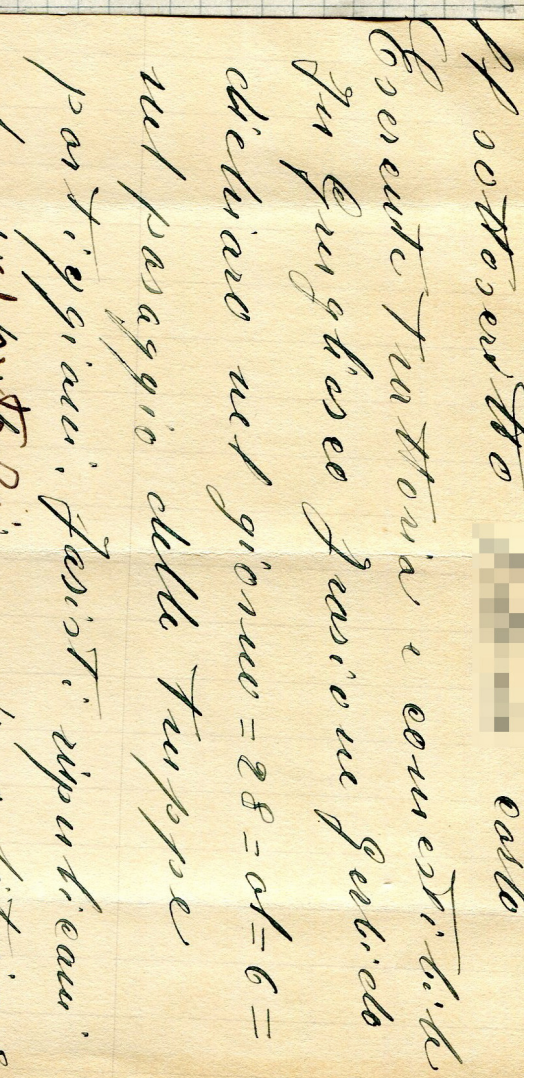 Il sottoscritto carlo
Esercente Trattoria e comestibile
In Grugliasco Frasione Gerbido
dichiaro nel giorno = 28 = al = 6 =
nel pasaggio delle Truppe
partiggiani, fasisti ripublicani